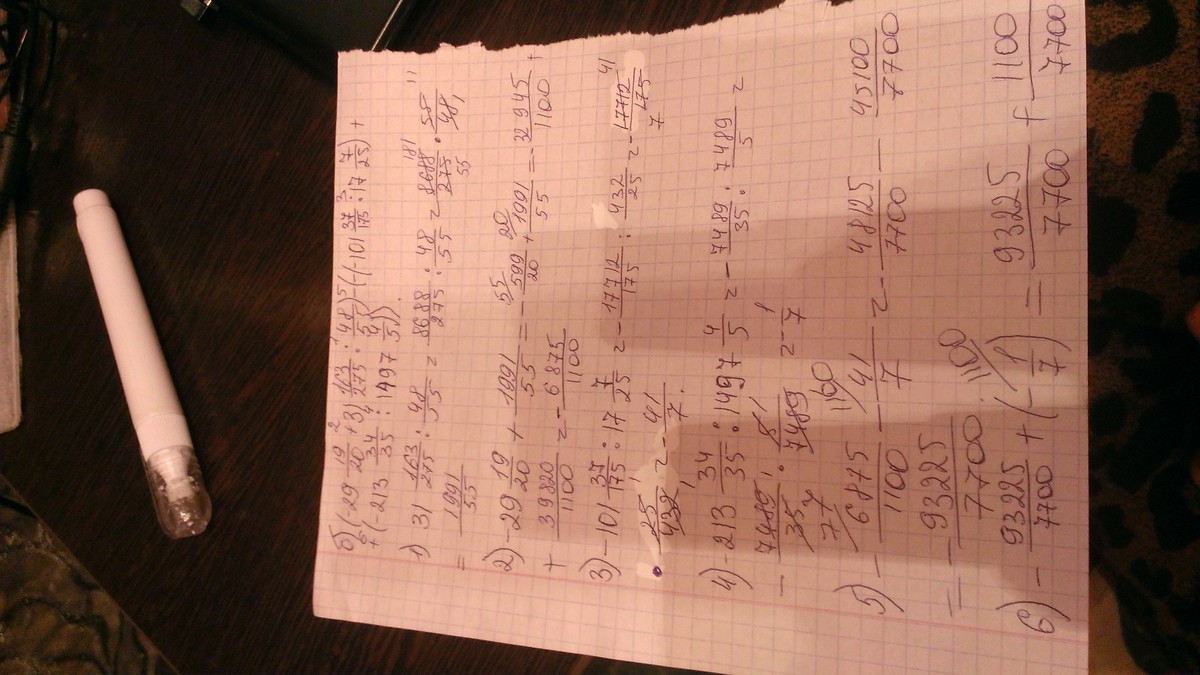 б) (-29 19/20 + 31 163/275 : 48/55) + (-101 37/175 : 17 7/25) +
+ (-213 34/35 : 1497 4/5).
1) 31 163/275 : 48/55 = 8688/275 : 48/55 = 8688/275 · 55/48 =
= 1991/55
2) -29 19/20 + 1991/55 = -599/20 + 1991/55 = -32945/1100 +
+ 39820/1100 = -6875/1100
3) -101 37/175 : 17 7/25 = -17712/175 : 432/25 = -17712/175
· 25/432 = -41/7.
4) -213 34/35 : 1497 4/5 = -7489/35 : 7489/5 =
- 7489/35 · 5/7489 = -1/7
5) - 6875/1100 - 41/7 = - 48125/7700 - 45100/7700
= - 93225/7700
6) - 93225/7700 + (-1/7) = 93225/7700 + 1100/7700